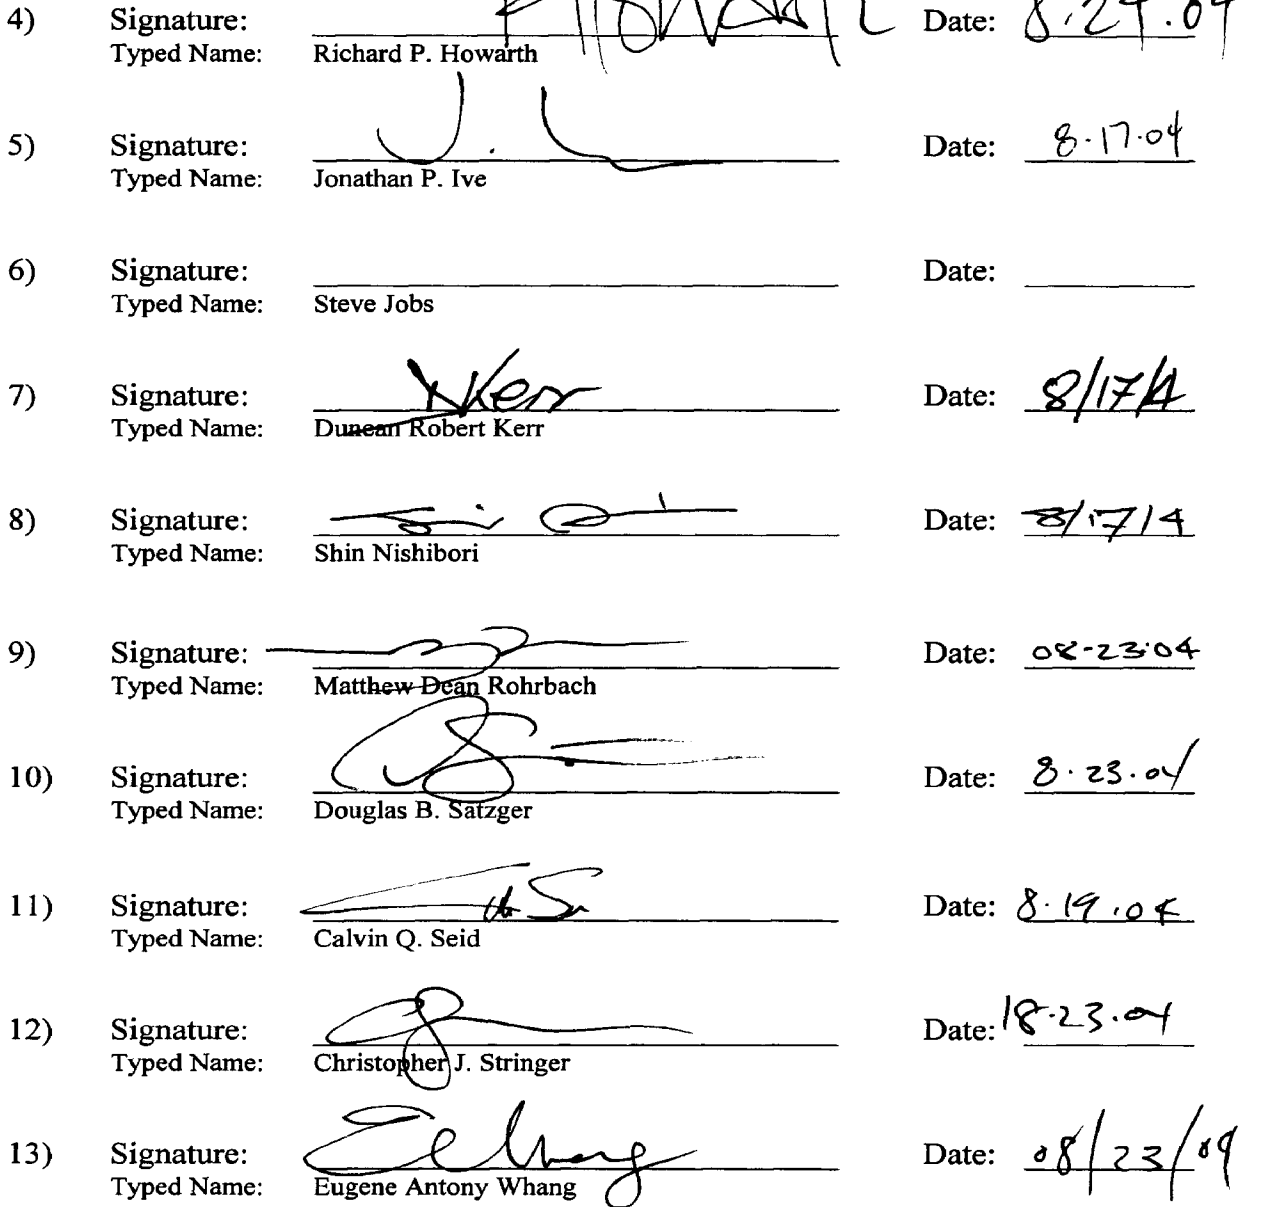 4) Signature: R Howarth Date: 8.24.04
Typed Name: Richard P. Howarth
5) Signature: J. Date: 8.17.04
Typed Name: Jonathan P. Ive
6) Signature: Date:
Typed Name: Steve Jobs
7) Signature: DKerr Date: 8/17/4
Typed Name: Duncan Robert Kerr
8) Signature: Date: 8/17/4
Typed Name: Shin Nishibori
9) Signature: Date: 08-23-04
Typed Name: Matthew Dean Rohrbach
10) Signature: Date: 8.23.04
Typed Name: Douglas B. Satzger
11) Signature: Date: 8.19.04
Typed Name: Calvin Q. Seid
12) Signature: Date: 8.23.04
Typed Name: Christopher J. Stringer
13) Signature: EWhang Date: 08/23/04
Typed Name: Eugene Antony Whang